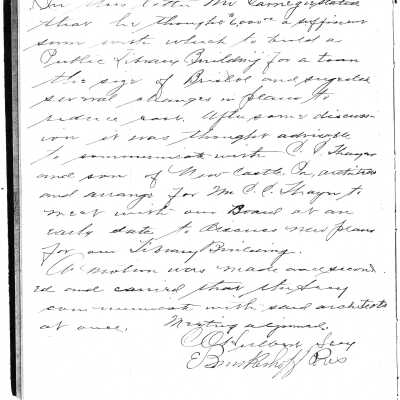 In this letter Mr Carnegie stated
that he thought a sufficient
sum with which to build a
Public Library Building for a town
the size of Bristol and suggested
several changes in plans to
reduce cost. After some discuss-
ion it was thought advisable
to communicate with C. C. Thayer
and son of New Castle Pa, architects
and arrange for Mr C. C. Thayer to
meet with our Board at an
early date to discuss new plans
for our Library Building.
A motion was made and second-
ed and carried that the Secy
communicate with said architects
at once. Meeting adjourned.
Secy
Pres